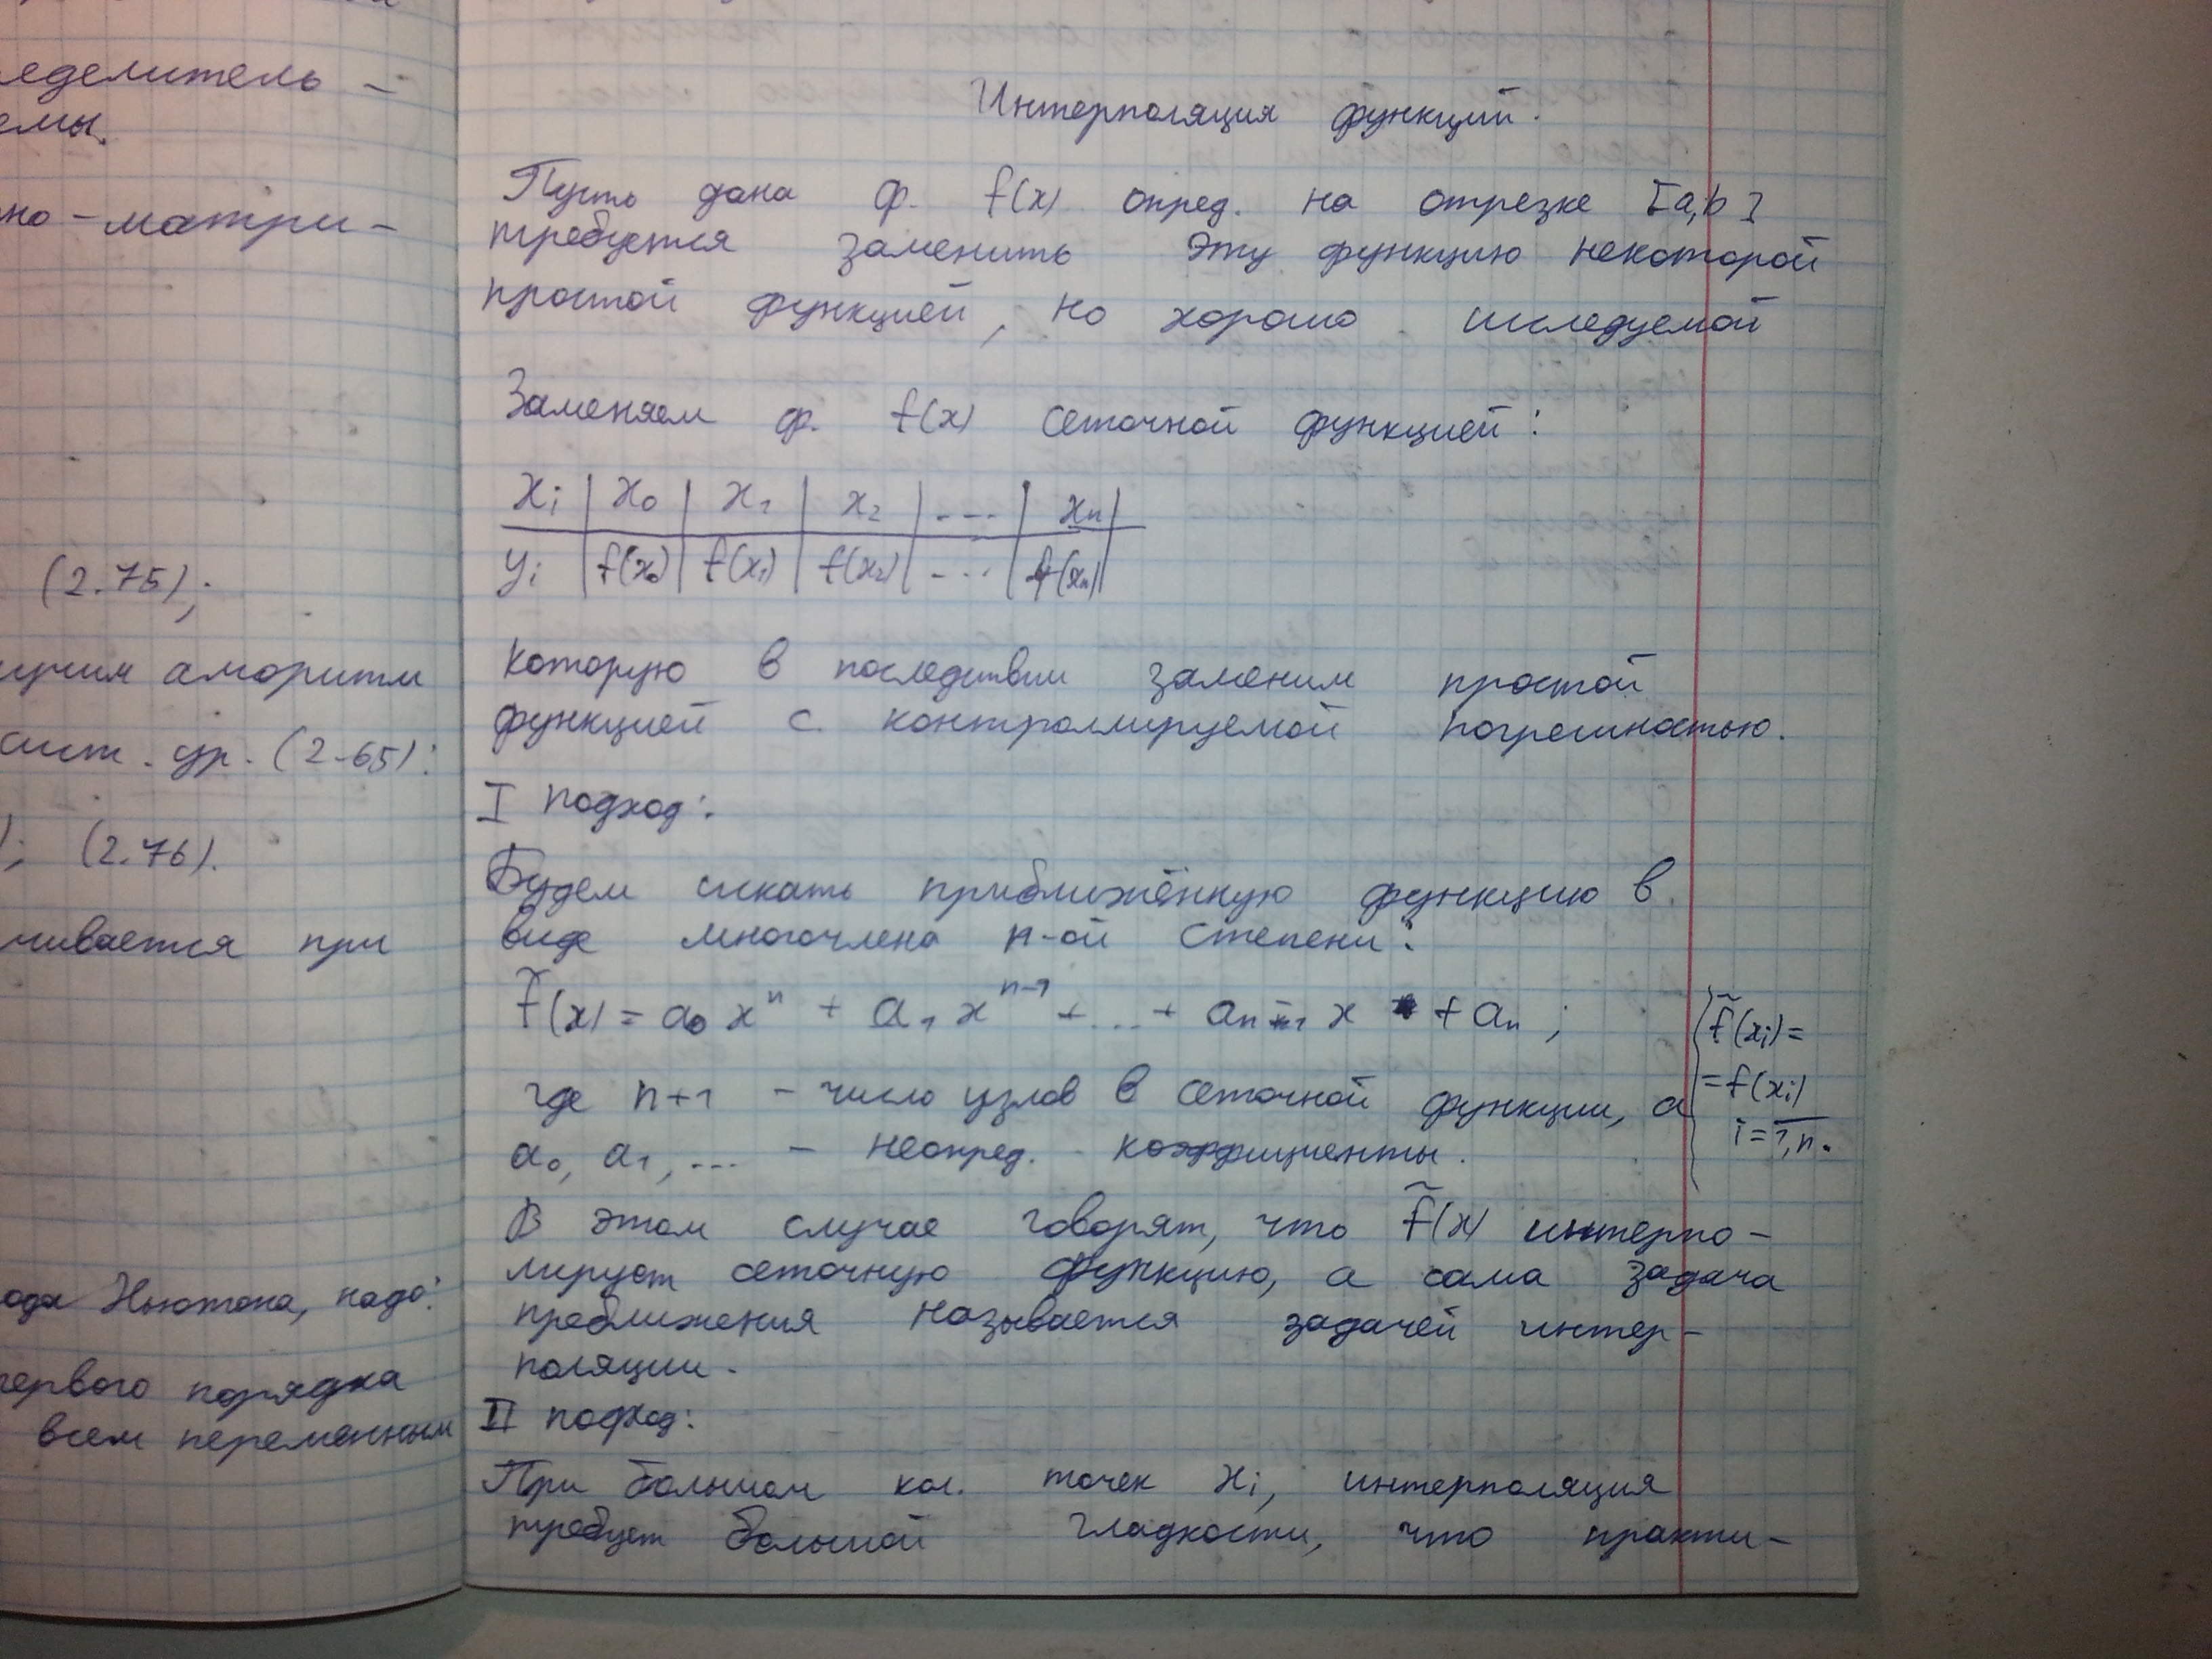 еделитель -
емы.
но - матри -
(2.75);
учим алгоритм
сист. ур. (2.65):
); (2.76).
чивается при
ода Ньютона, надо:
первого порядка
всем переменным
Интерполяция функций.
Пусть дана ф. f(x) опред. на отрезке [a,b]
требуется заменить эту функцию некоторой
простой функцией, но хорошо исследуемой
Заменяем ф. f(x) сеточной функцией:
xi | x0 | x1 | x2 | ... | xn |
yi | f(x0) | f(x1) | f(x2) | ... | f(xn) |
которую в последствии заменим простой
функцией с контролируемой погрешностью.
I подход:
Будем искать приближённую функцию в
виде многочлена n-ой степени:
f̃(x) = a0 xⁿ + a1 xⁿ⁻¹ + ... + an-1 x + an ;
{ f̃(xi) =
= f(xi)
i = 1,n.
где n+1 - число узлов в сеточной функции, а
a0, a1, ... - неопред. коэффициенты.
В этом случае говорят, что f̃(x) интерпо -
лирует сеточную функцию, а сама задача
преближения называется задачей интер -
поляции.
II подход:
При большом кол. точек xi, интерполяция
требует большой гладкости, что практи -